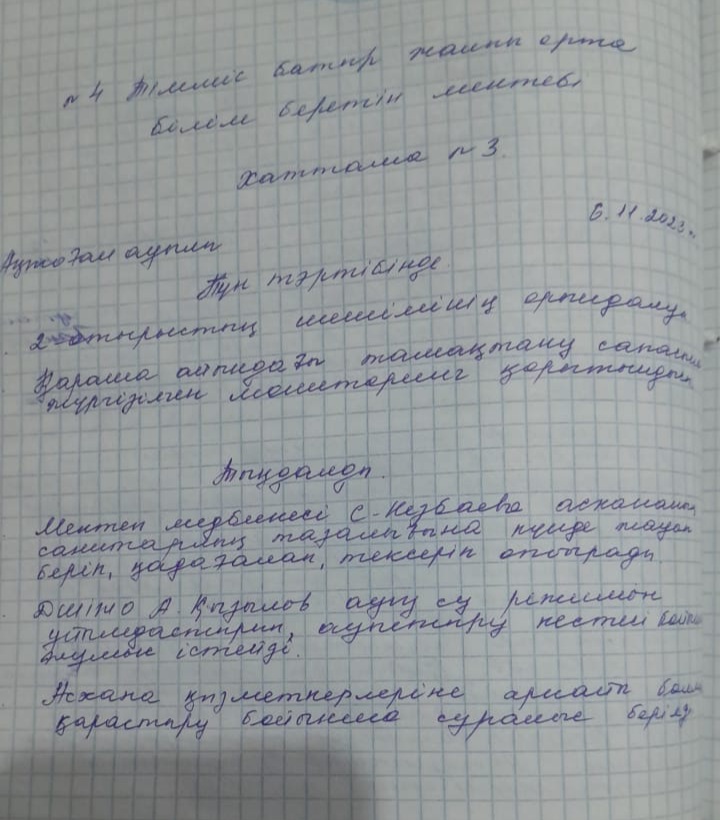 № 4 Тілміс батыр жалпы орта
білім беретін мектебі
Хаттама № 3.
6.11.2023ж.
ауылы
Күн тәртібінде.
2 отырыстың шешімінің орындалуы
Қараша айындағы тамақтану сапасын
жүргізілген мониторинг қорытындысы
Тыңдалды.
Мектеп медбикесі С. асхананың
санитарлық тазалығына күнде жауап
беріп, қадағалап, тексеріп отырады.
ДШІЖО А. Қызылов ауыз су режимін
ұйымдастырып, ауыстыру кестесі бойы
жұмыс істейді.
Асхана қызметкерлеріне арнайы бөлме
қарастыру бойынша сұраныс берілді